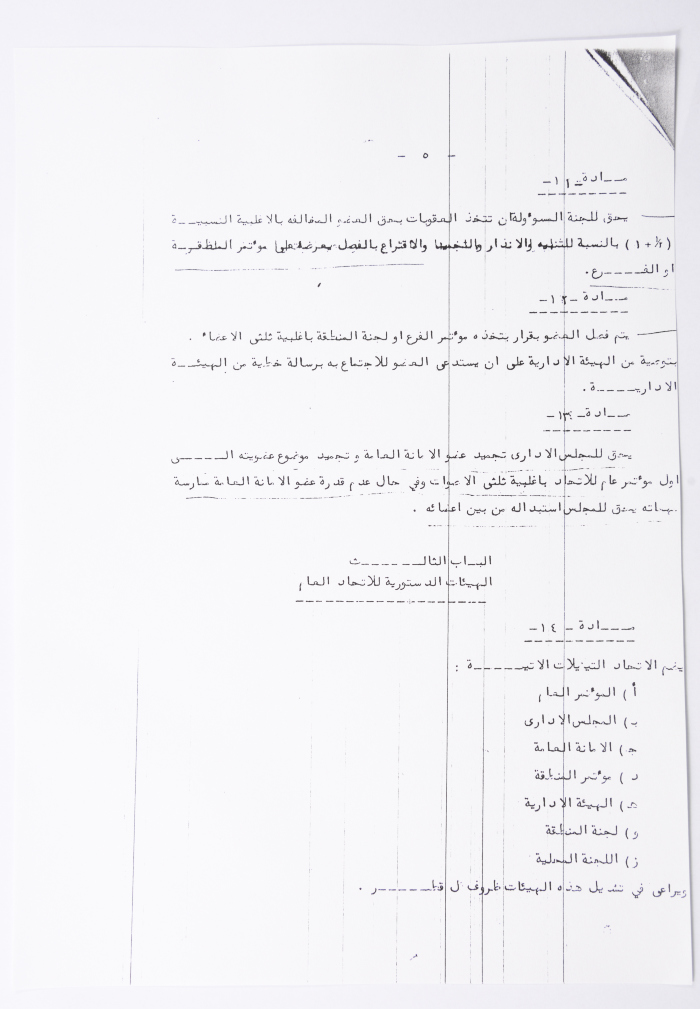 - ٥ -
مـــادة -١١-
يحق للجنة المسؤولة ان تتخذ العقوبات بحق العضو المخالفه بالاغلبية النسبيـــة
( ½ + ١ ) بالنسبة للتنبيه والانذار والتجميد والاقتراع بالفصل يعرضه على مؤتمر المنطقـة
او الفـــــرع.
مـــادة -١٢-
يتم فصل العضو بقرار يتخذه مؤتمر الفرع او لجنة المنطقة باغلبية ثلثي الاعضاء .
بتوصية من الهيئة الادارية على ان يستدعى العضو للاجتماع به برسالة خطية من الهيئــة
الاداريـــــة.
مـــادة -١٣-
يحق للمجلس الادارى تجميد عضو الامانة العامة و تجميد موضوع عضويته الـــــى
اول مؤتمر عام للاتحاد باغلبية ثلثى الاصوات وفي حال عدم قدرة عضو الامانة العامة ممارسة
مهماته يحق للمجلس استبداله من بين اعضائه .
البـاب الثالـــــــث
الهيئات الدستورية للاتحاد العام
مـــادة - ١٤ -
يضم الاتحاد الاتيـــــــة :
أ ) المؤتمر العام
ب) المجلس الادارى
ج) الامانة العامة
د ) مؤتمر المنطقة
هـ) الهيئة الادارية
و) لجنة المنطقة
ز) اللجنة المحلية
ويراعى في تشكيل هذه الهيئات ظروف كل قطـــــــر .